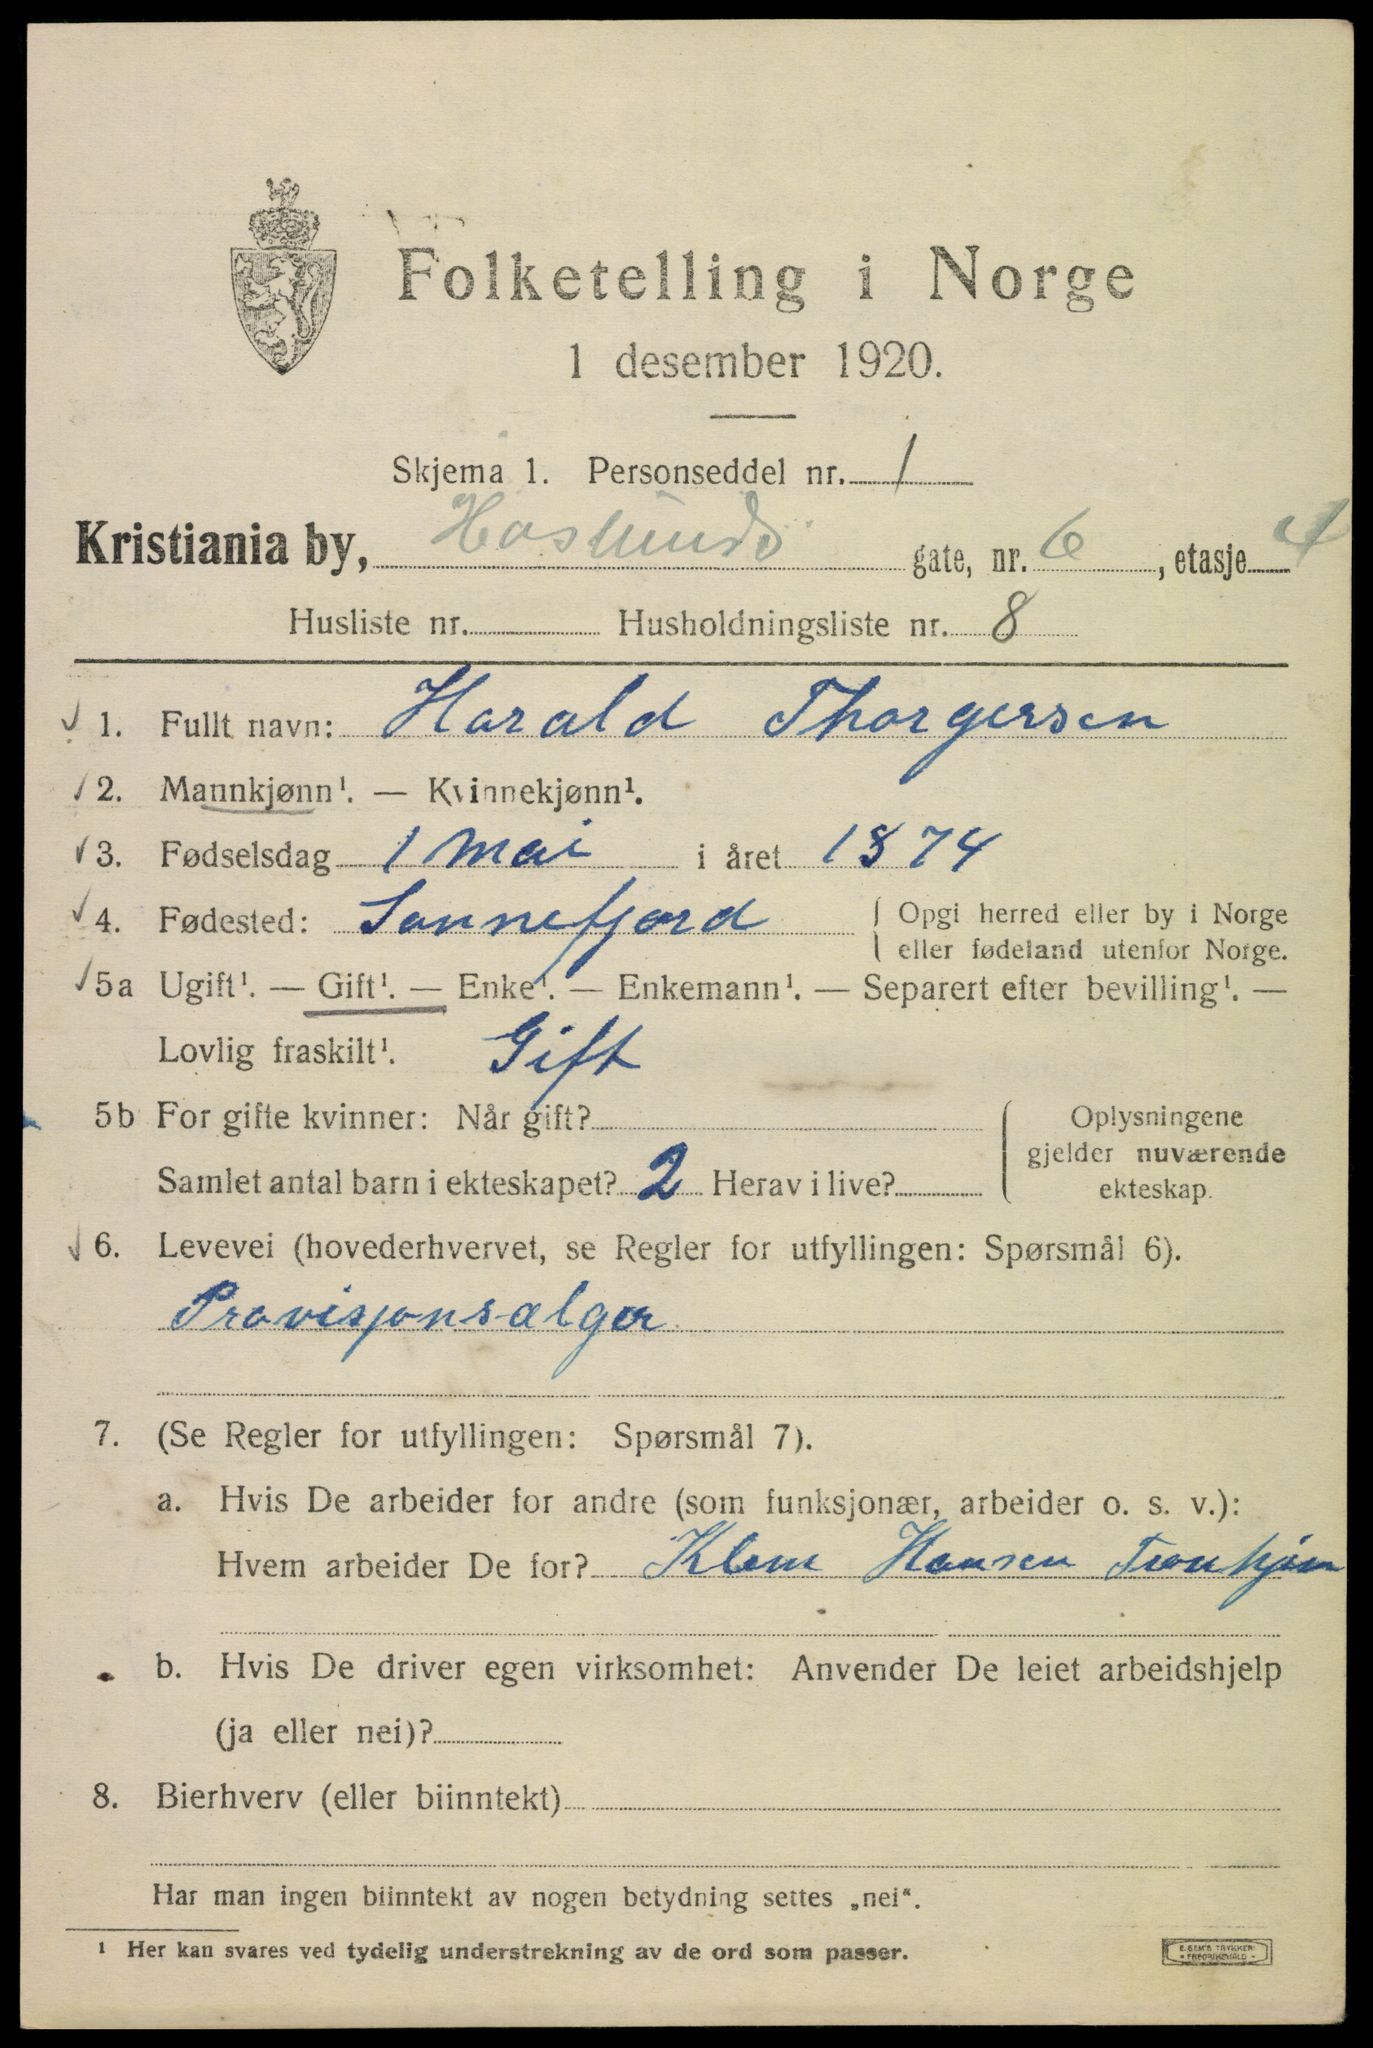 Folketelling i Norge
1 desember 1920.
Skjema 1. Personseddel nr. 1
Kristiania by, Haslunds gate, nr. 6, etasje 4
Husliste nr. Husholdningsliste nr. 8
1. Fullt navn: Harald Thorgersen
2. Mannkjønn¹. — Kvinnekjønn¹.
3. Fødselsdag 1 mai i året 1874
4. Fødested: Sannefjord { Opgi herred eller by i Norge
eller fødeland utenfor Norge.
5a Ugift¹. — Gift¹. — Enke¹. — Enkemann¹. — Separert efter bevilling¹. —
Lovlig fraskilt¹. Gift
5b For gifte kvinner: Når gift? Oplysningene
gjelder nuværende
Samlet antal barn i ekteskapet? 2 Herav i live? ekteskap.
6. Levevei (hovederhvervet, se Regler for utfyllingen: Spørsmål 6).
Provisjonsælger
7. (Se Regler for utfyllingen: Spørsmål 7).
a. Hvis De arbeider for andre (som funksjonær, arbeider o. s. v.):
Hvem arbeider De for? Klem Hansen Tronhjem
b. Hvis De driver egen virksomhet: Anvender De leiet arbeidshjelp
(ja eller nei)?
8. Bierhverv (eller biinntekt)
Har man ingen biinntekt av nogen betydning settes „nei“.
¹ Her kan svares ved tydelig understrekning av de ord som passer.
E. SEM'S TRYKKERI
FREDRIKSHALD